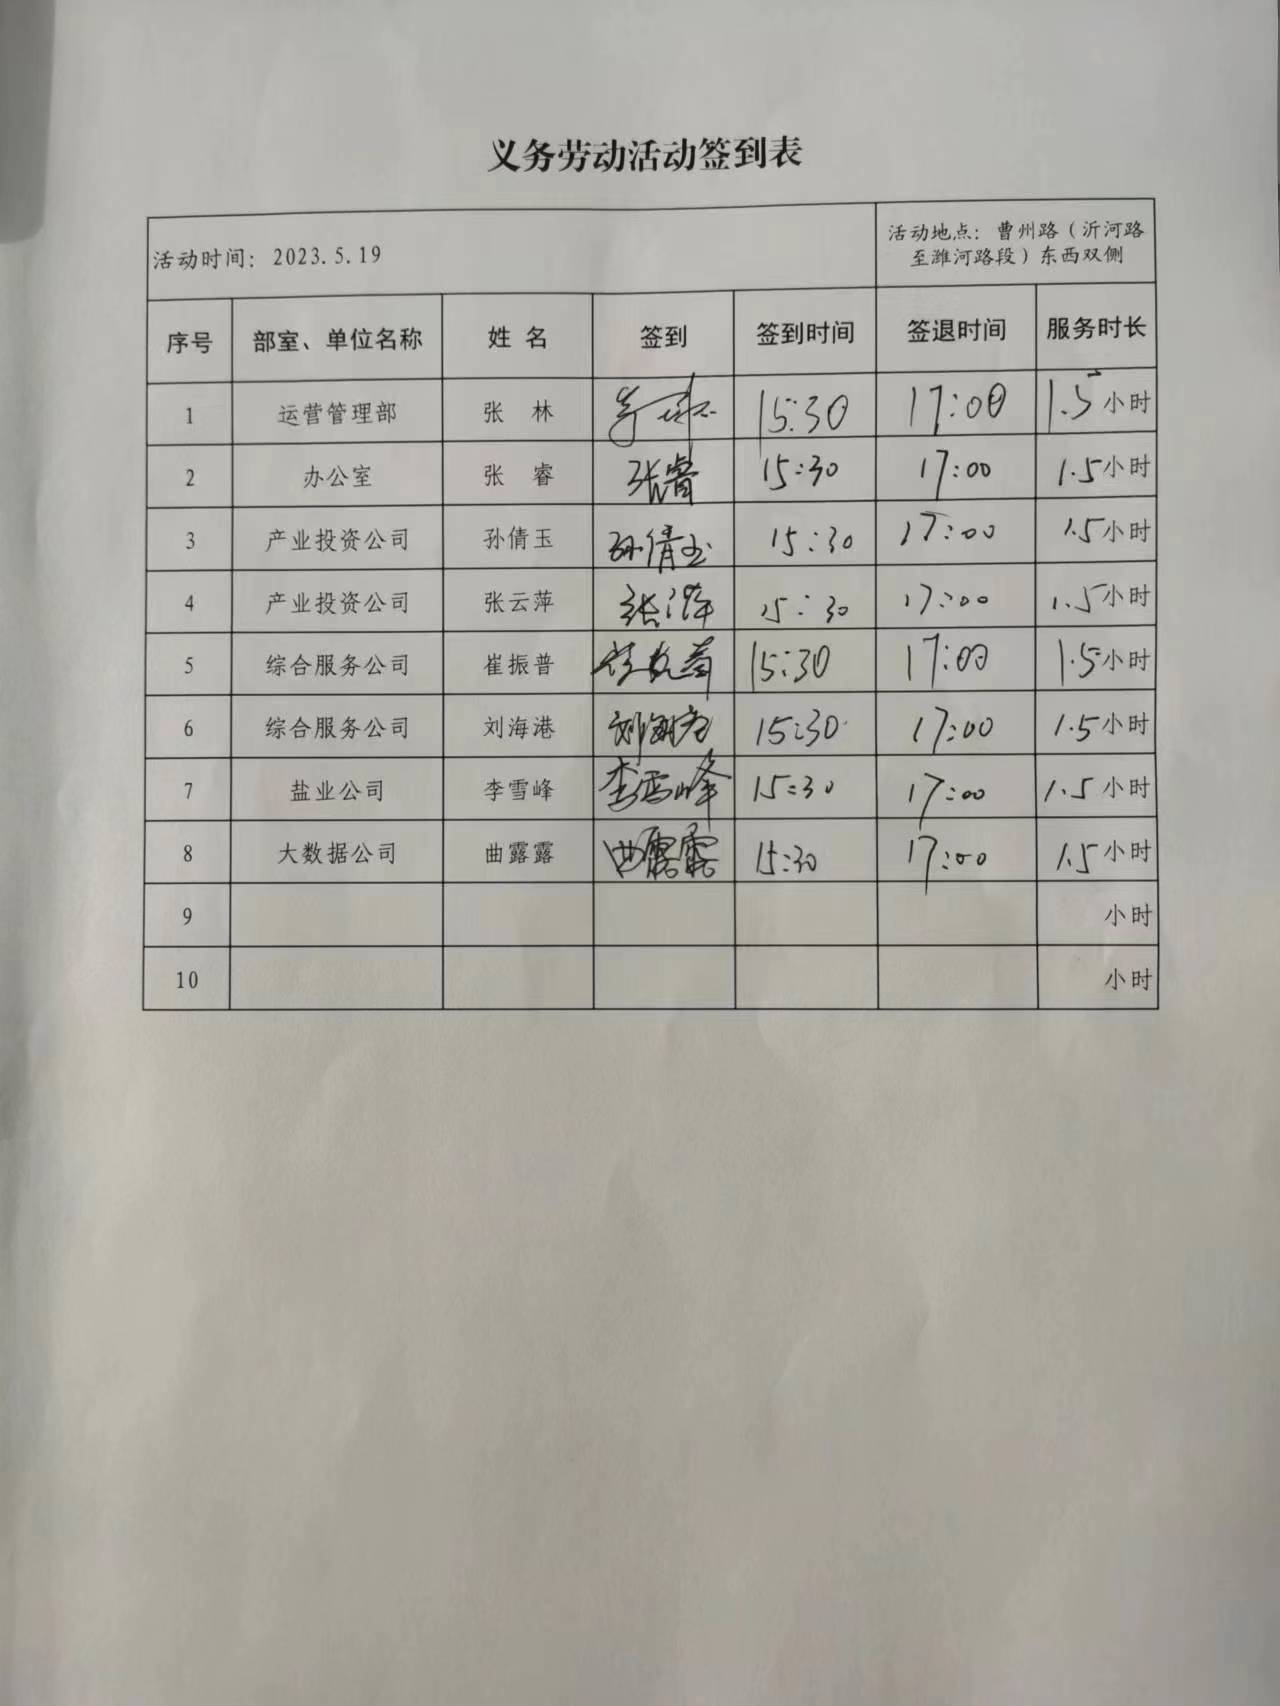 义务劳动活动签到表
活动时间：2023.5.19
活动地点：曹州路（沂河路
至潍河路段）东西双侧
序号 部室、单位名称 姓 名 签到 签到时间 签退时间 服务时长
1 运营管理部 张 林 15:30 17:00 1.5小时
2 办公室 张 睿 张睿 15:30 17:00 1.5小时
3 产业投资公司 孙倩玉 孙倩玉 15:30 17:00 1.5小时
4 产业投资公司 张云萍 15:30 17:00 1.5小时
5 综合服务公司 崔振普 15:30 17:00 1.5小时
6 综合服务公司 刘海港 刘海港 15:30 17:00 1.5小时
7 盐业公司 李雪峰 李雪峰 15:30 17:00 1.5小时
8 大数据公司 曲露露 曲露露 15:30 17:00 1.5小时
9 小时
10 小时